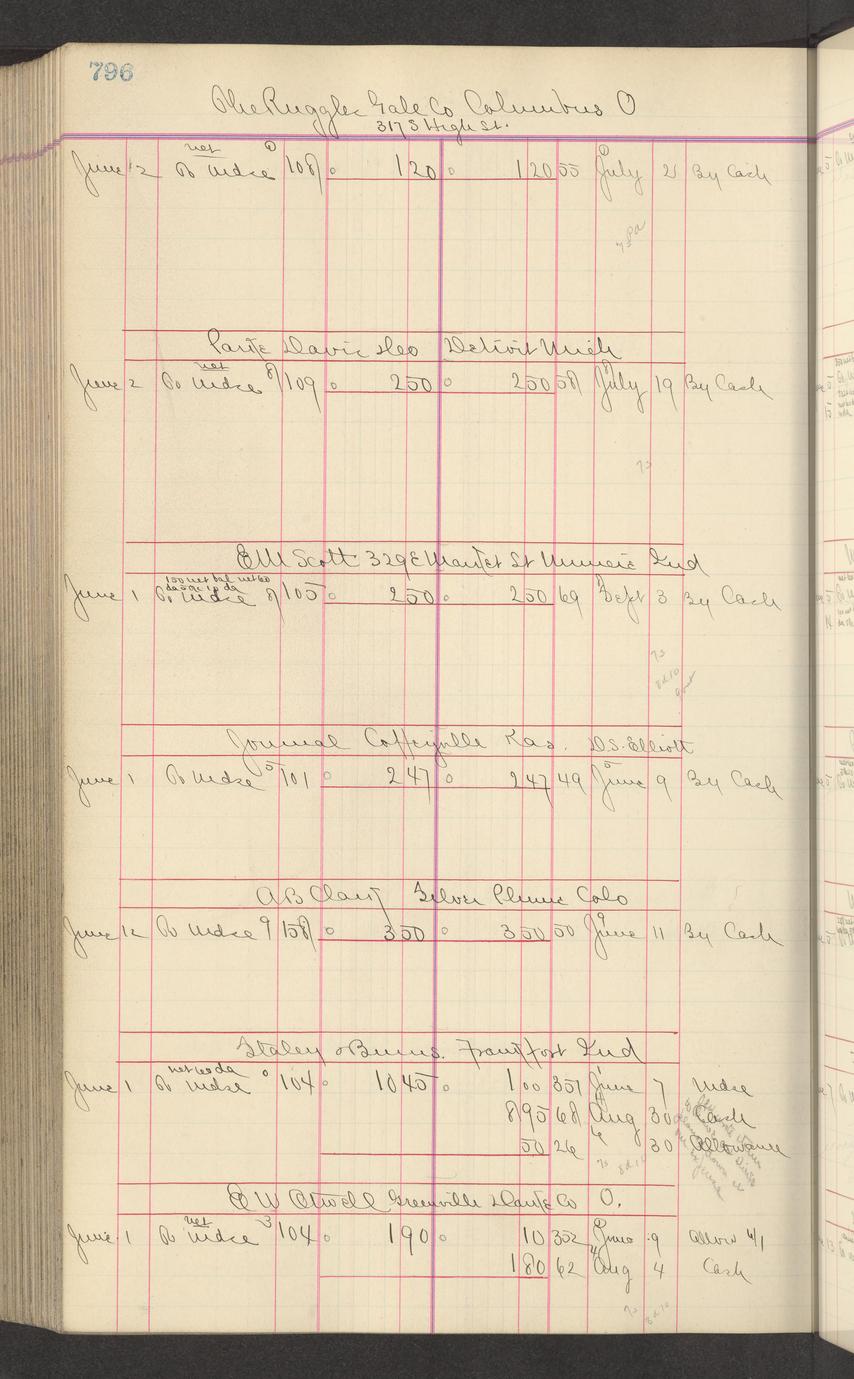 796
The Ruggles Gale Co Columbus O
317 S High St.
net
June 2 To Mdse 108 120 120 55 July 2 By Cash
Parke Davis & Co Detroit Mich
net
June 2 To Mdse 8 109 250 250 58 July 19 By Cash
E M Scott 329 E Market St Muncie Ind
150 net bal net 60
June 1 To Mdse 8 105 250 250 69 Sept 3 By Cash
Journal Coffeyville Kas. D.S. Elliott
June 1 To Mdse 5 101 247 247 49 June 9 By Cash
A B Clark Silver Plume Colo
June 12 To Mdse 9 158 350 350 50 June 11 By Cash
Staley & Burns. Frankfort Ind
net 60 da
June 1 To Mdse 104 1045 100 351 June 7 Mdse
895 68 Aug 30 Cash
50 26 30 Allowance
E W Otwell Greenville Darke Co O.
net
June 1 To Mdse 3 104 190 10 352 June 9 Allow
180 62 Aug 4 Cash